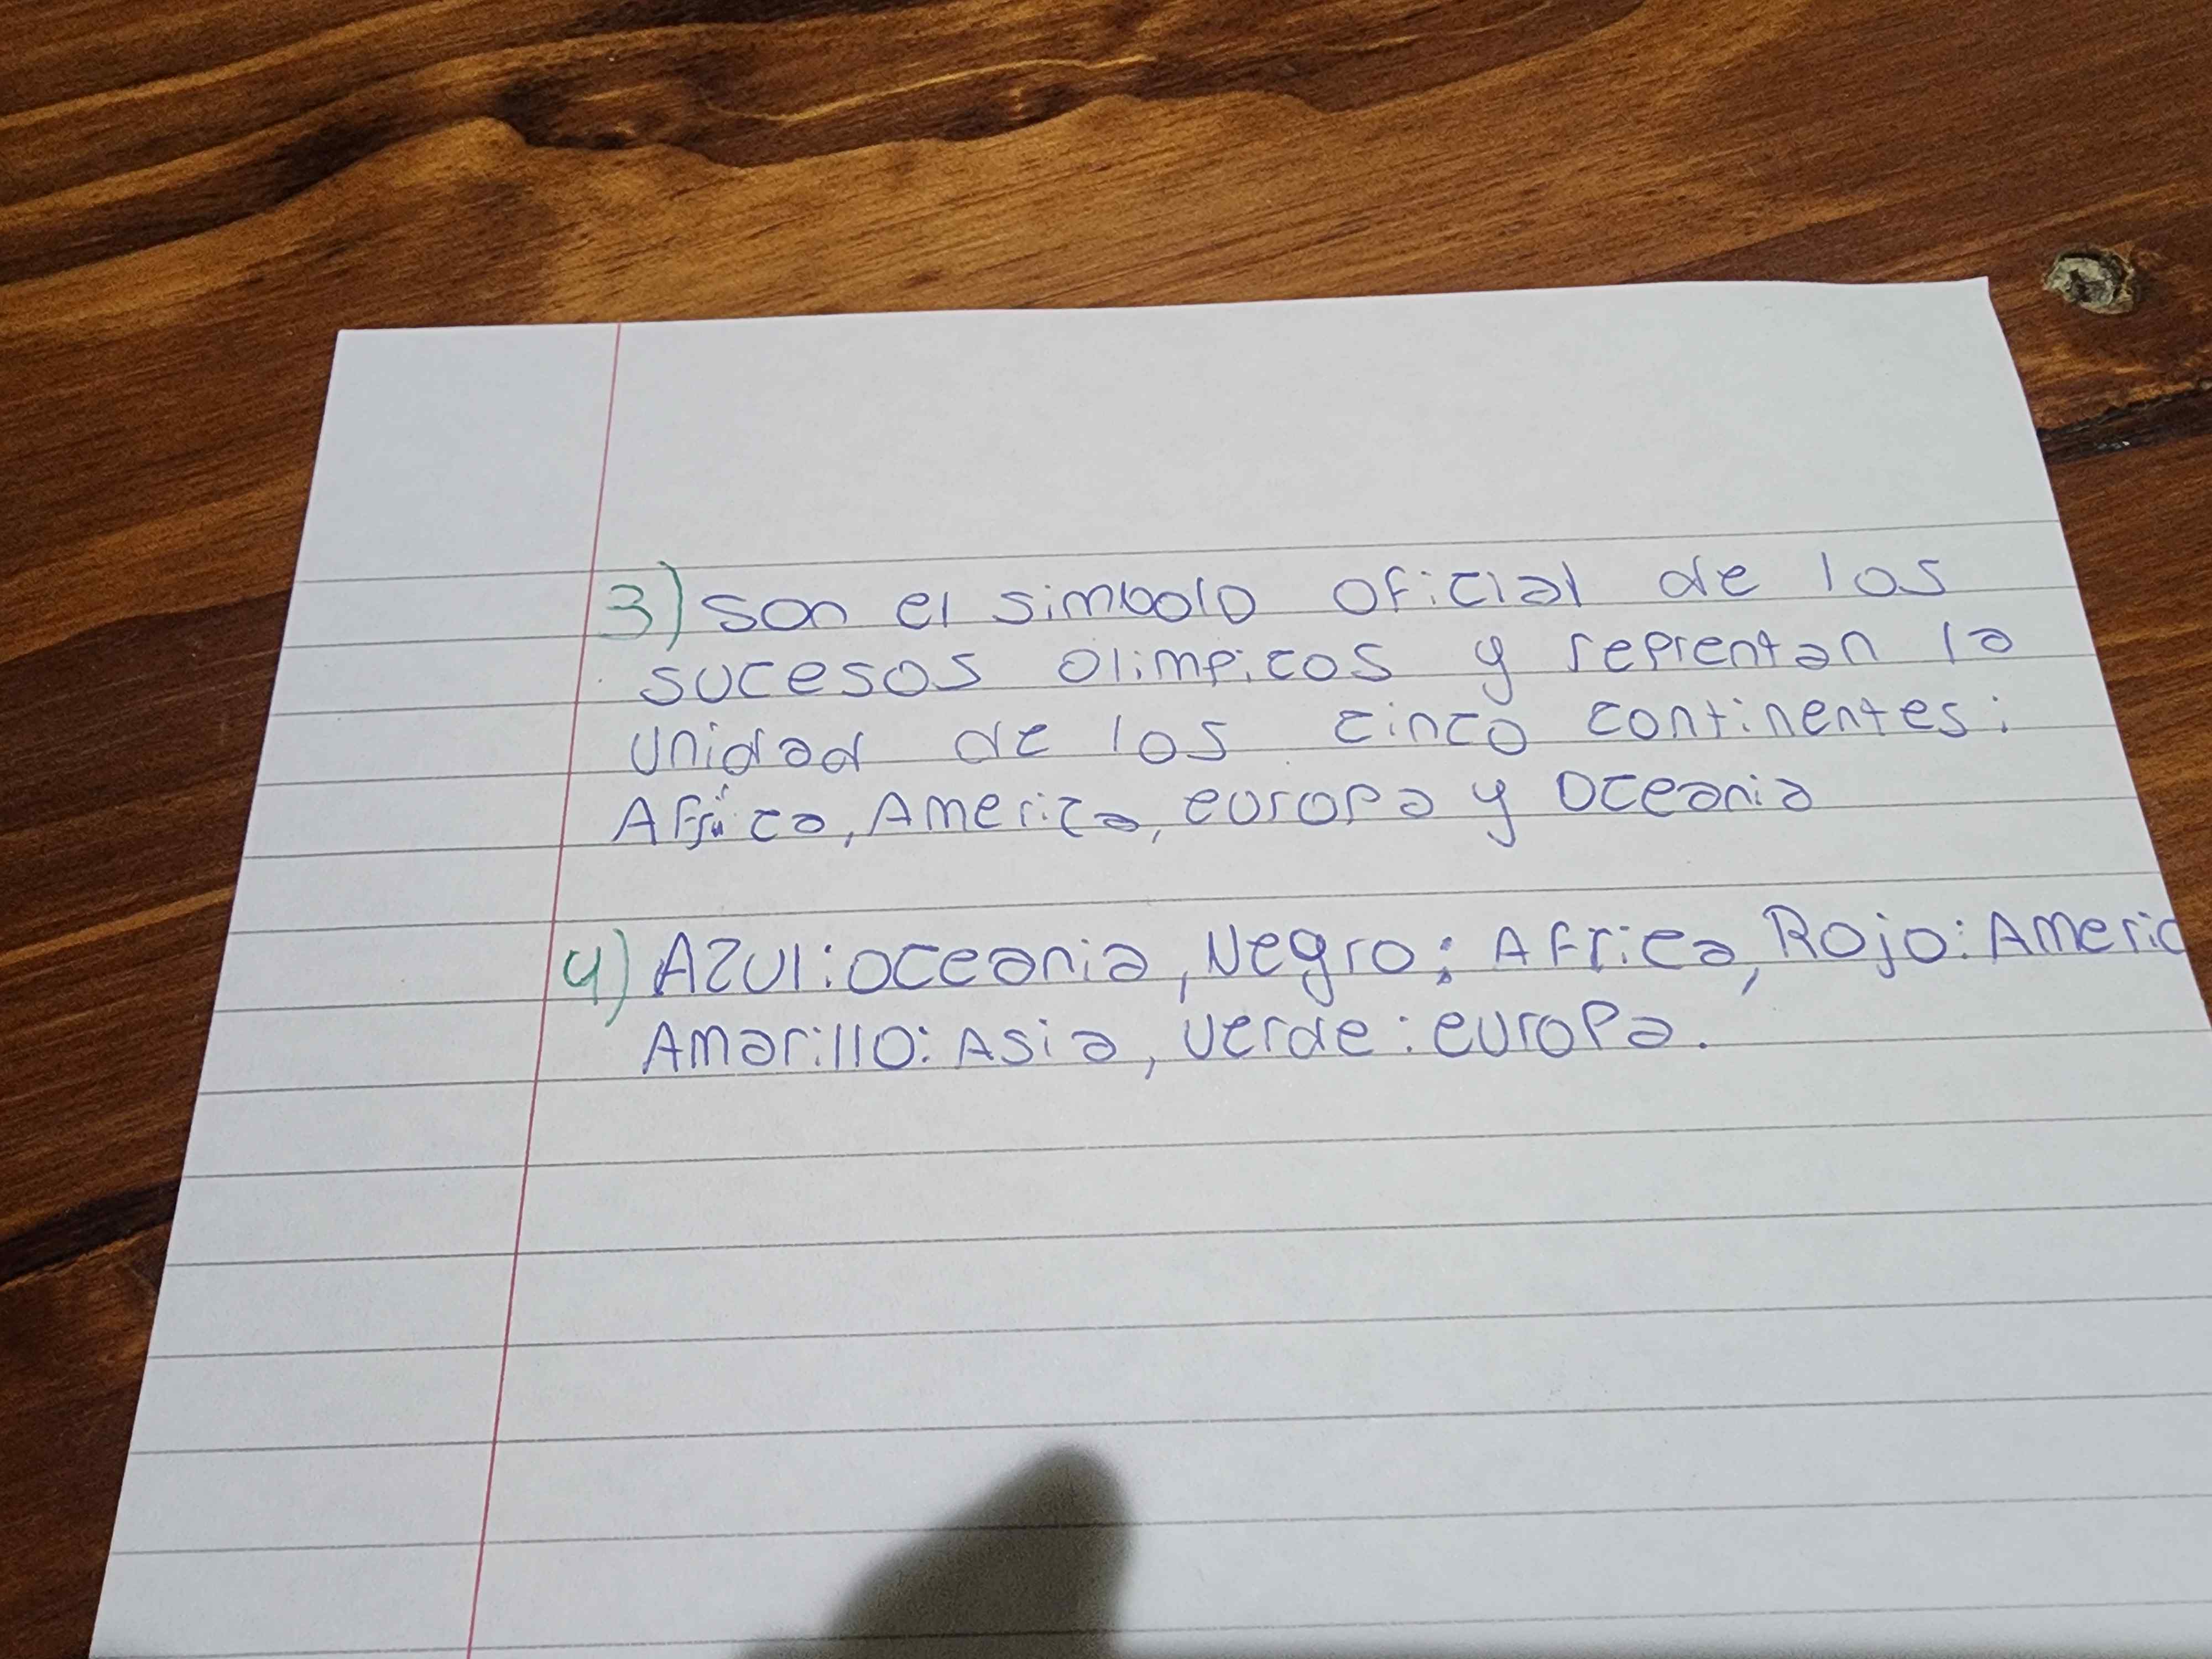 3) son el simbolo oficial de los
sucesos olimpicos y reprentan la
unidad de los cinco continentes:
Africa, America, europa y Oceania
4) Azul: oceania, Negro: Africa, Rojo: Americ
Amarillo: Asia, verde: europa.